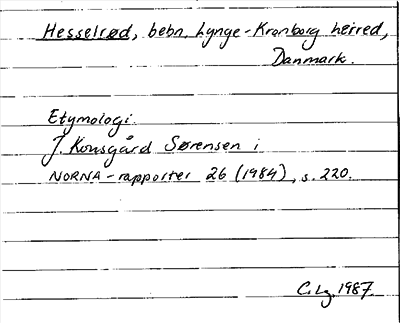 Hesselrød, bebn. Lynge-Kronborg herred,
Danmark.
Etymologi.
J. Kousgård Sørensen i
NORNA-rapporter 26 (1984), s. 220.
C. Lg. 1987.